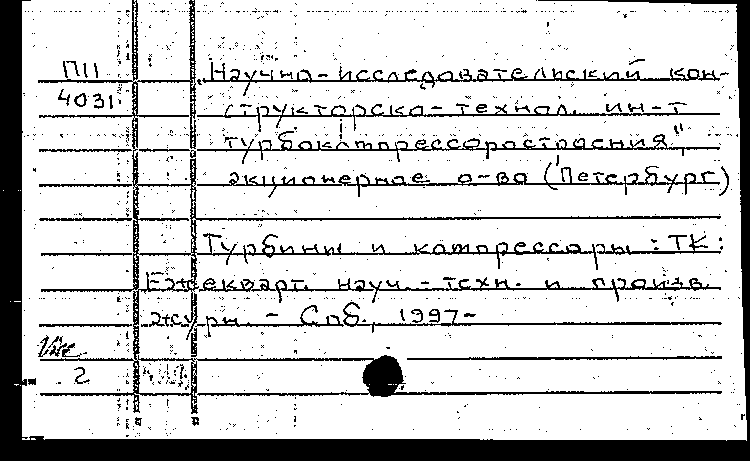 П11
4031
„Научно-исследовательский кон-
структорско-технол. ин-т
турбокомпрессоростроения",
акционерное о-во (Петербург)
Турбины и компрессоры : ТК :
Ежекварт. науч.-техн. и произв.
журн. - Спб., 1997-
2